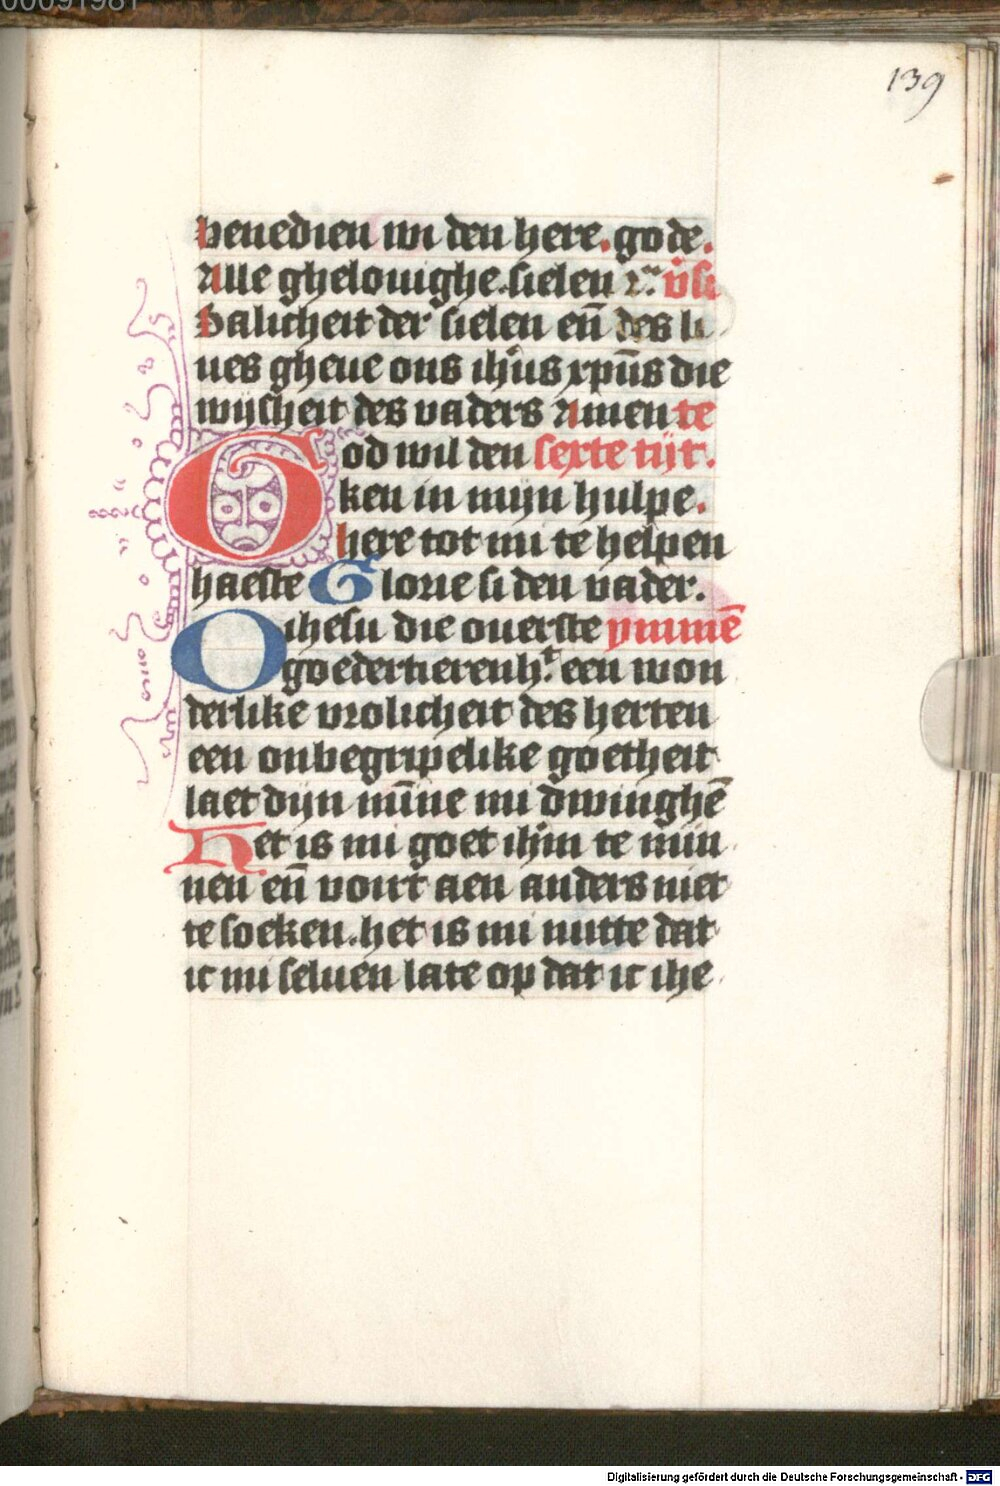 00091981
139
benedien wi den here. gode.
Alle ghelouighe. sielen r̃. v̾si
Salicheit der sielen en̄ des li
ues gheue ons ih̾us xpūs die
wijsheit des vaders Amen te
God wil den sexte tijt.
ken in mijn hulpe.
here tot mi te helpen
haeste Glorie si den vader.
O ihesu die ouerste ymmē
goedertierenh̾t. een won
derlike vrolicheit des herten
een onbegripelike goetheit
laet dijn mīne mi dwinghē
Het is mi goet ih̾m te min
nen en̄ voirt aen anders niet
te soeken. het is mi nutte dat
ic mi seluen late op dat ic ihe
Digitalisierung gefördert durch die Deutsche Forschungsgemeinschaft - DFG